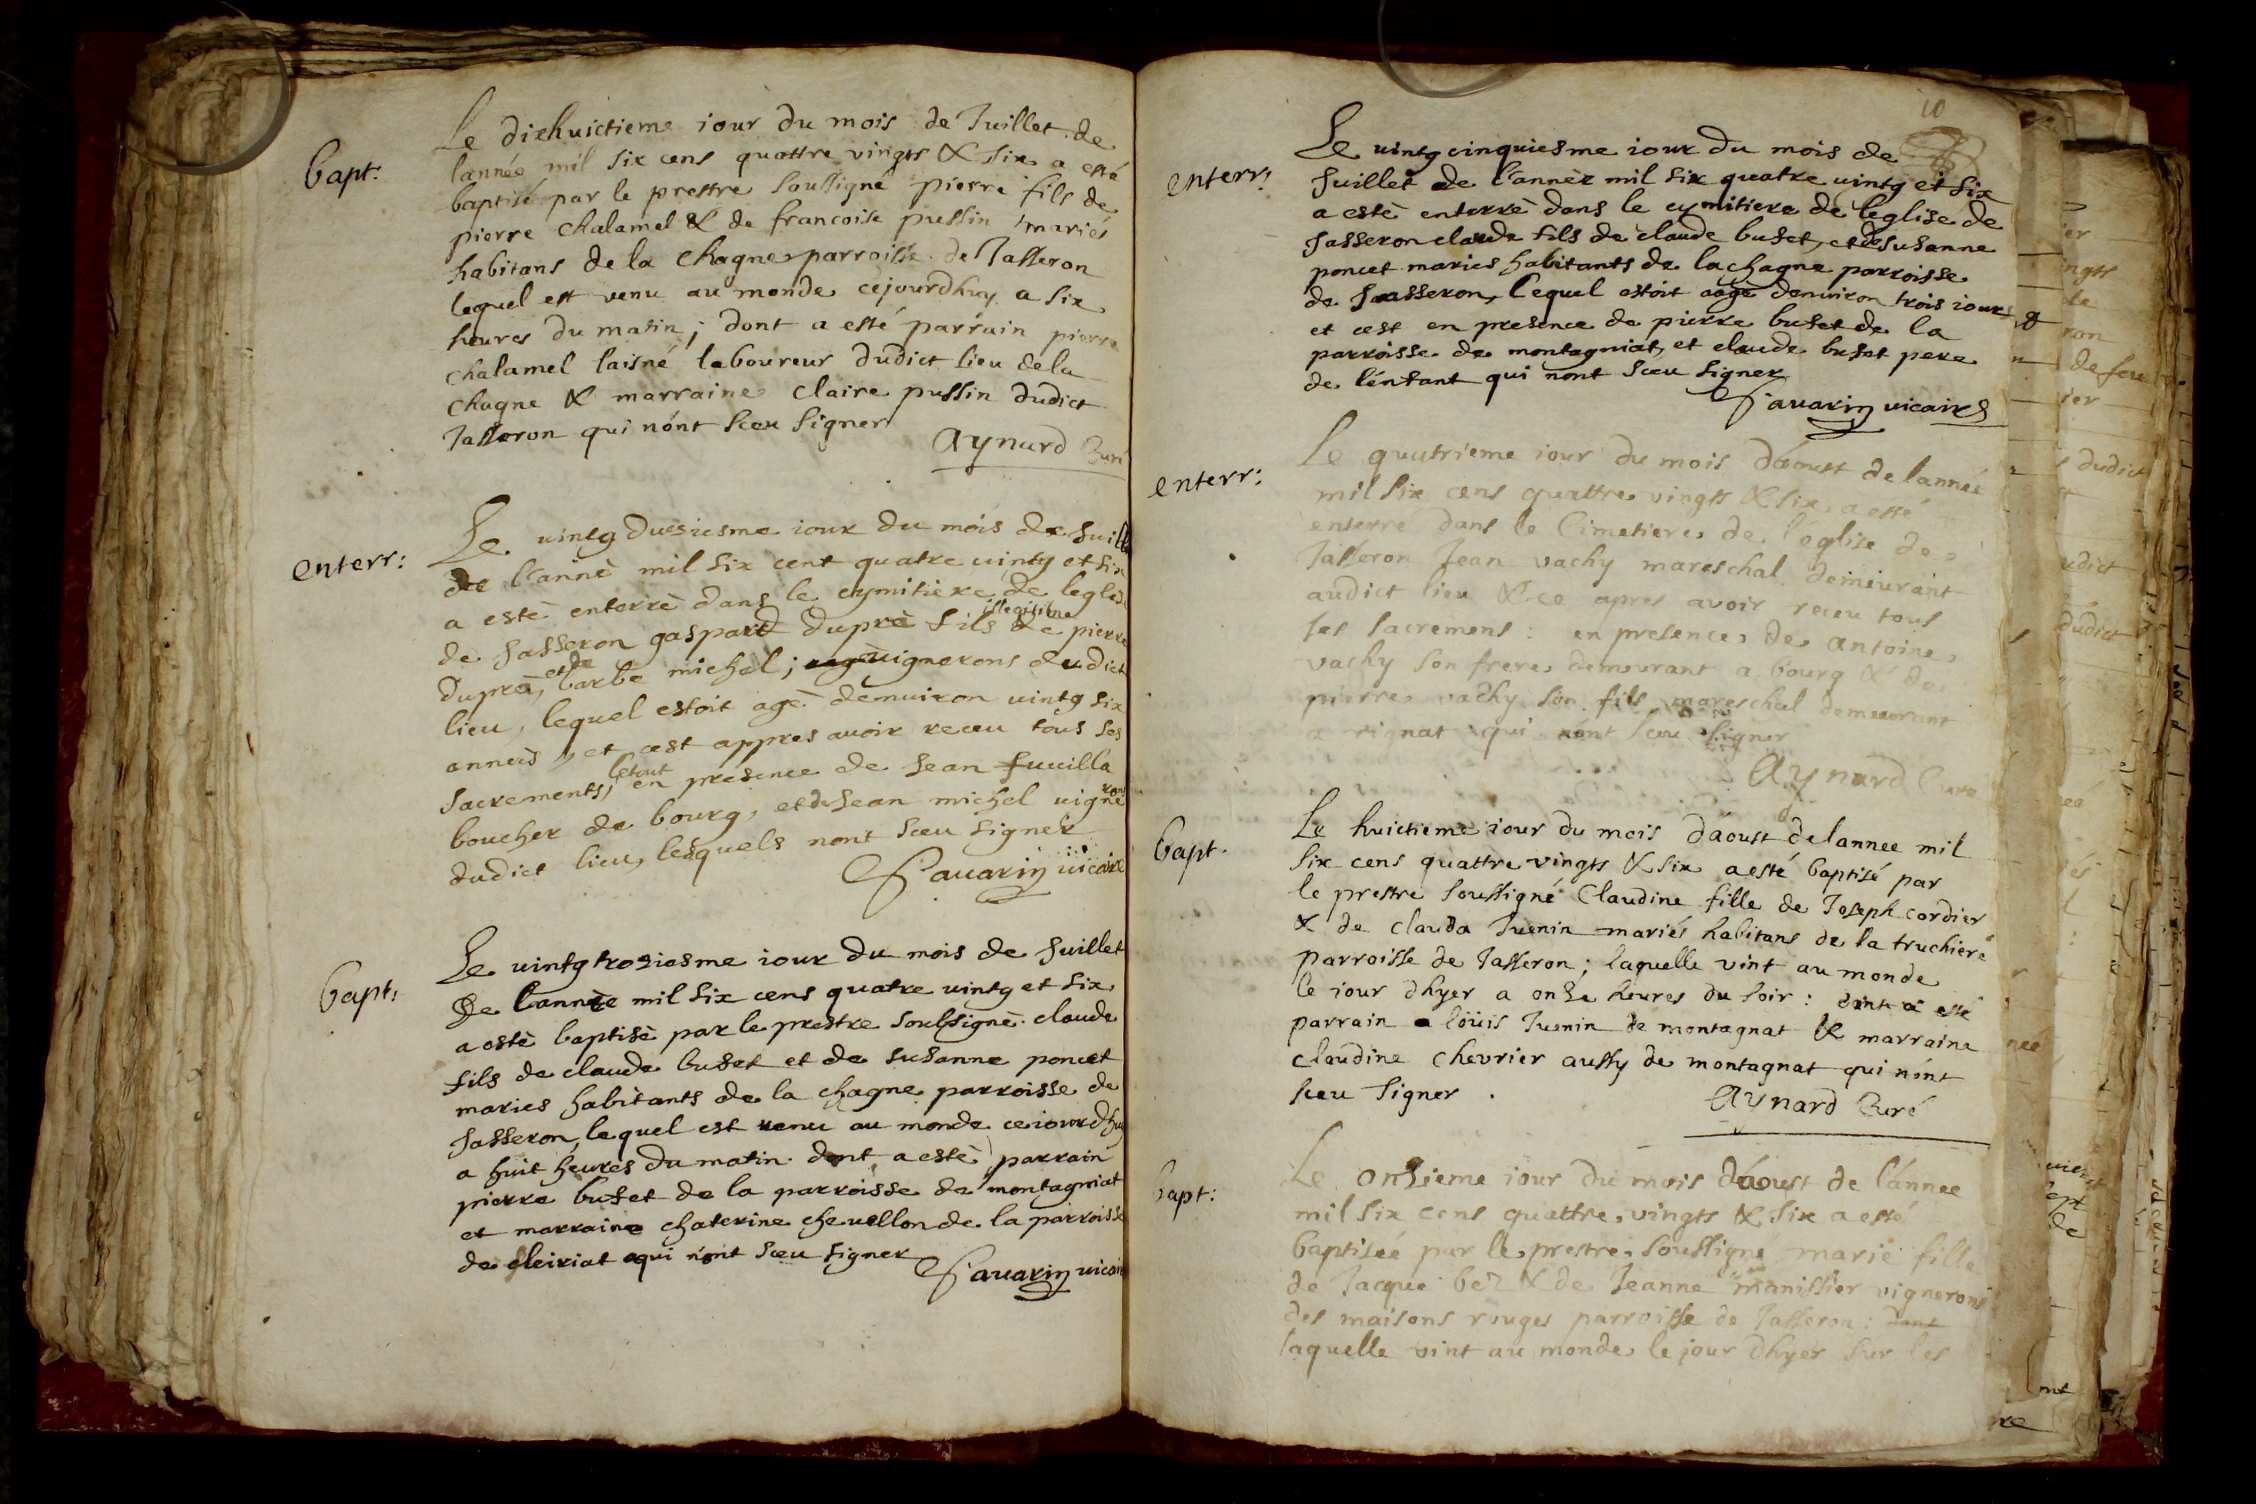 bapt:
Le dixhuictieme iour du mois de Juillet de
lannée mil six cens quattre vingts & six a esté
baptisé par le prestre soussigné pierre fils de
pierre chalamel & de francoise pussin mariés
habitans de la chagne parroisse de Jasseron
lequel est venu au monde cejourdhuy a six
heures du matin; dont a esté parrain pierre
chalamel laisné laboureur dudict lieu dela
chagne & marraine claire pussin dudict
Jasseron qui nónt sceu signer
Aynard Curé
enterr:
Le uintg dusiesme iour du mois de Juill
de l'annè mil six cent quatre uintg et six
a estè enterrè dans le cymitiere de leglise
de Jasseron gaspard duprè fils illegitime de pierre
duprè, et de barbe michel; uignerons dudict
lieu, lequel estoit agè denuiron uintg six
anneès, et cest appres auoir receu tous ses
sacrements, letout en presence de Jean fuuilla
boucher de bourg, et de Jean michel uigneron
dudict lieu, lesquels nont sceu signer
Sauarin uicaire
bapt:
Le uintg trosiesme iour du mois de Juillet
de l'annèe mil six cens quatre uintg et six
a estè baptisè par le prestre soussignè claude
fils de claude buset et de susanne poncet
maries habitants de la chagne parroisse de
Jasseron, lequel est uenu au monde ceiourdhuy
a huit heures du matin dont a estè parrain
pierre buset de la parroisse de montagniat
et marraine chaterine cheuellon de la parroisse
de fleiriat qui nont sceu signer
Sauarin uicaire
10
enterr:
Le uintg cinquiesme iour du mois de
Juillet de l'annèe mil six quatre uintg et six
a estè enterrè dans le cymitiere de leglise de
Jasseron claude fils de claude buset, et de susanne
poncet maries habitants de la chagne parroisse
de Jasseron, lequel estoit aagè denuiron trois iours
et cest en presence de pierre buset de la
parroisse de montagniat, et claude buset pere
de lénfant qui nont sceu signer
Sauarin uicaire
enterr:
Le quatrieme iour du mois dáoust de lannée
mil six cens quattre vingts & six a esté
enterré dans le Cimetiere de l'église de
Jasseron Jean vachy mareschal demeurant
audict lieu & ce apres avoir receu tous
ses sacremens: en presence de antoine
vachy son frere demeurant a bourg & de
pierre vachy son fils mareschal demeurant
a rignat qui nónt sceu signer
Aynard Curé
bapt.
Le huictieme iour du mois dáoust de lannee mil
six cens quattre vingts & six a esté baptisé par
le prestre soussigné Claudine fille de Joseph cordier
& de clauda Juenin mariés habitans de la truchiere
parroisse de Jasseron; laquelle vint au monde
le iour dhyer a onze heures du soir: dont a esté
parrain a loüis Juenin de montagnat & marraine
claudine chevrier aussy de montagnat qui nónt
sceu signer.
Aynard Curé
bapt:
Le onzieme iour du mois dáoust de lánnee
mil six cens quattre vingts & six a esté
baptiseé par le prestre soussigné marie fille
de Jacque bez & de Jeanne manissier vignerons
des maisons rouges parroisse de Jasseron: dont
laquelle vint au monde le jour dhyer sur les